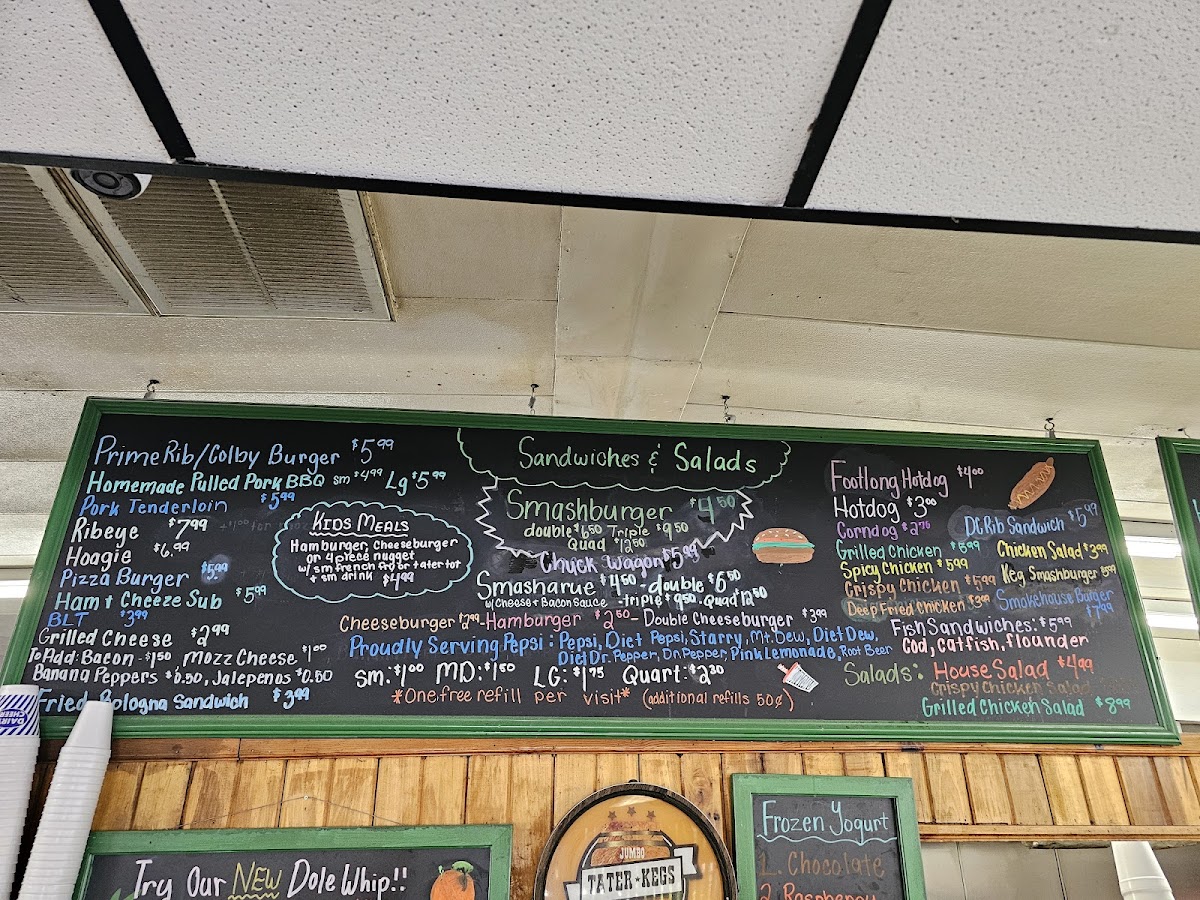 Prime Rib/Colby Burger $5.99
Homemade Pulled Pork BBQ sm $4.99 Lg $5.99
Pork Tenderloin $5.99
Ribeye $7.99
Hoagie $6.99
Pizza Burger $5.99
Ham + Cheeze Sub $5.99
BLT $3.99
Grilled Cheese $2.99
To Add: Bacon - $1.50, Mozz Cheese $1.00
Banana Peppers $0.50, Jalepenos $0.50
Fried Bologna Sandwich $3.99
Kids Meals
Hamburger, Cheeseburger
or 4 piece nugget
w/ sm french fry or tater tot
+ sm drink $4.99
Sandwiches & Salads
Smashburger $4.50
double $6.50 Triple $9.50
Quad $12.50
Chuck Wagon $5.99
Smasharue $4.50 - double $6.50
w/ Cheese + Bacon Sauce - triple $9.50, Quad $12.50
Cheeseburger $2.99 - Hamburger $2.50 - Double Cheeseburger $3.99
Proudly Serving Pepsi: Pepsi, Diet Pepsi, Starry, Mt. Dew, Diet Dew,
Diet Dr. Pepper, Dr. Pepper, Pink Lemonade, Root Beer
Sm: $1.00 MD: $1.50 LG: $1.75 Quart: $2.30
*One free refill per visit* (additional refills 50¢)
Footlong Hotdog $4.00
Hotdog $3.00
Corndog $2.75
Grilled Chicken $5.99
Spicy Chicken $5.99
Crispy Chicken $5.99
Deep Fried Chicken $3.99
DG Rib Sandwich $5.49
Chicken Salad $3.99
Keg Smashburger $5.99
Smokehouse Burger
$7.99
Fish Sandwiches: $5.99
Cod, Catfish, flounder
Salads: House Salad $4.99
Crispy Chicken Salad
Grilled Chicken Salad $8.99
DAIRY
CHEER
Try Our NEW Dole Whip!!
JUMBO
TATER KEGS
Frozen Yogurt
1. Chocolate
2. Raspberry